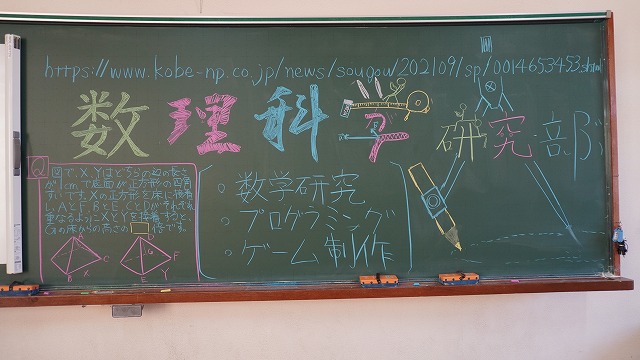 https://www.kobe-np.co.jp/news/sougou/202109/sp/0014653453.shtml
数理科学研究部
Q
図で、X、Yはどちらの辺の長さ
が1cmで底面が正方形の四角
すいです。Xの正方形を床に接着
し、AとF、BとE、CとDがそれぞれ
重なるようにXとYを接着すると、
Gの床からの高さの 倍です。
・数学研究
・プログラミング
・ゲーム制作
A
B
C
X
G
F
E
Y